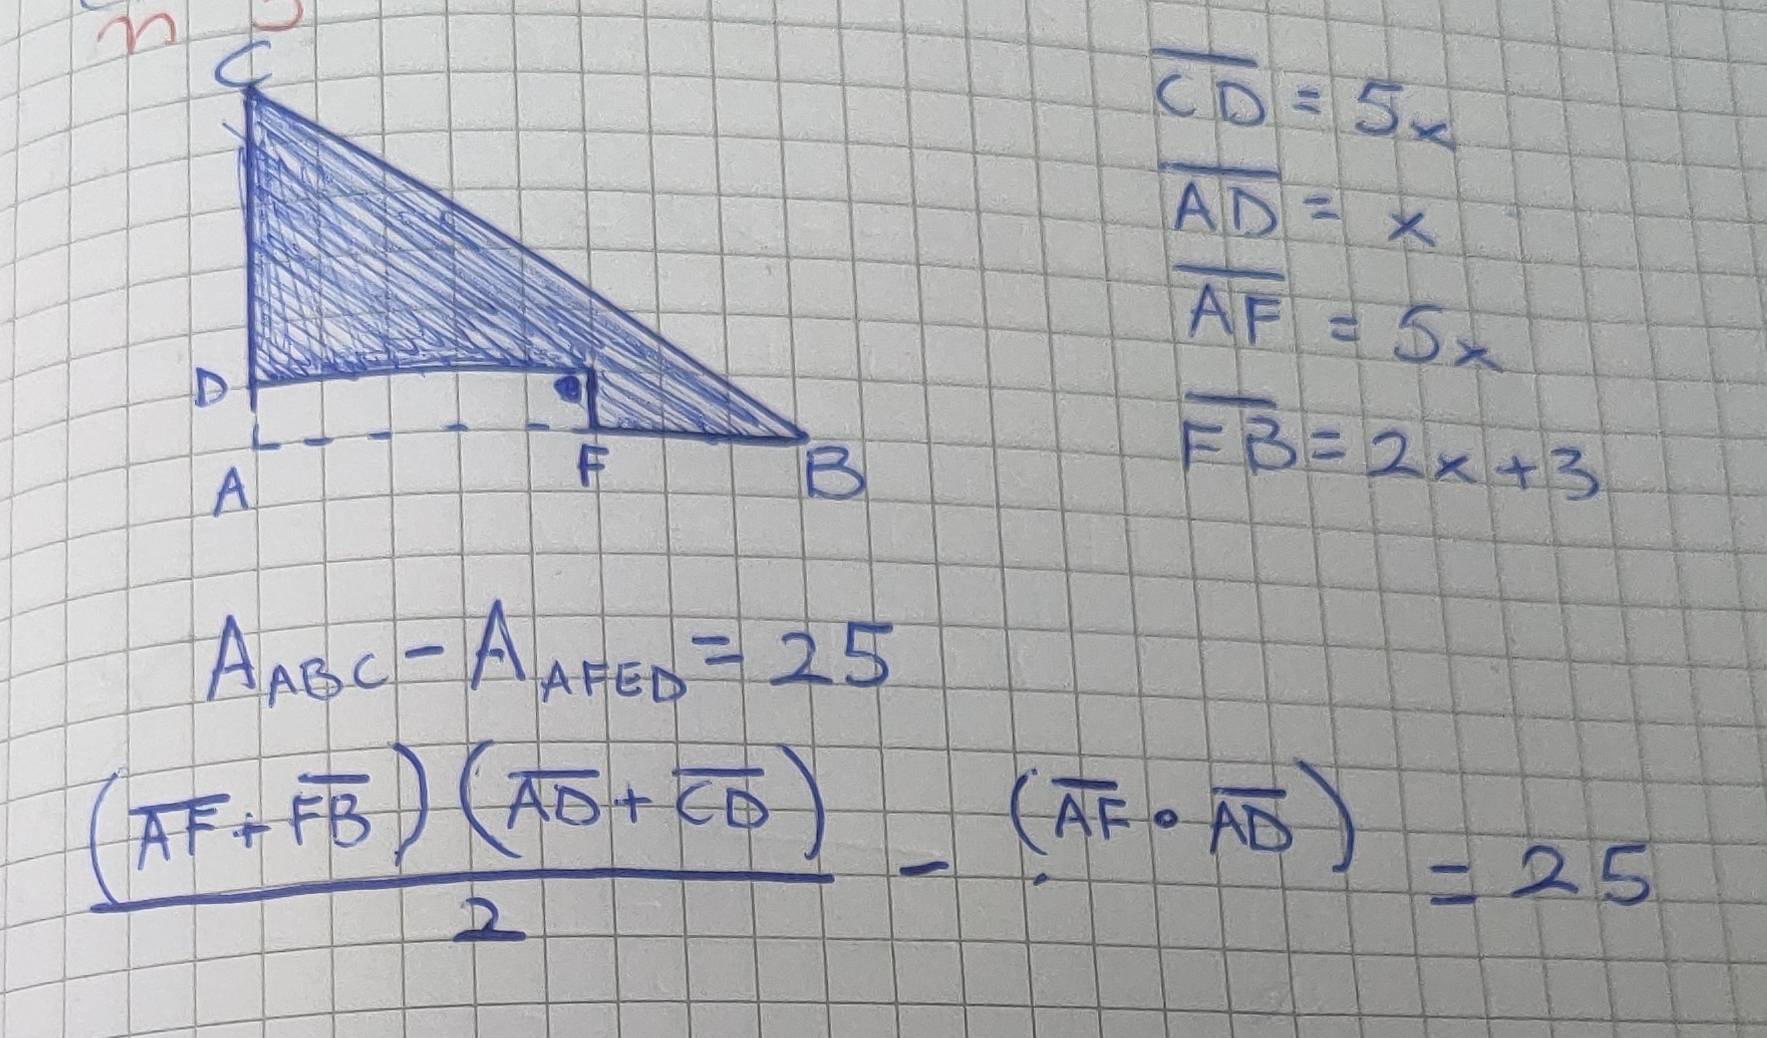 n
C
D
A
F
B
C̅D̅ = 5x
A̅D̅ = x
A̅F̅ = 5x
F̅B̅ = 2x+3
A_ABC - A_AFED = 25
(A̅F̅+F̅B̅)(A̅D̅+C̅D̅)/2 - (A̅F̅•A̅D̅) = 25